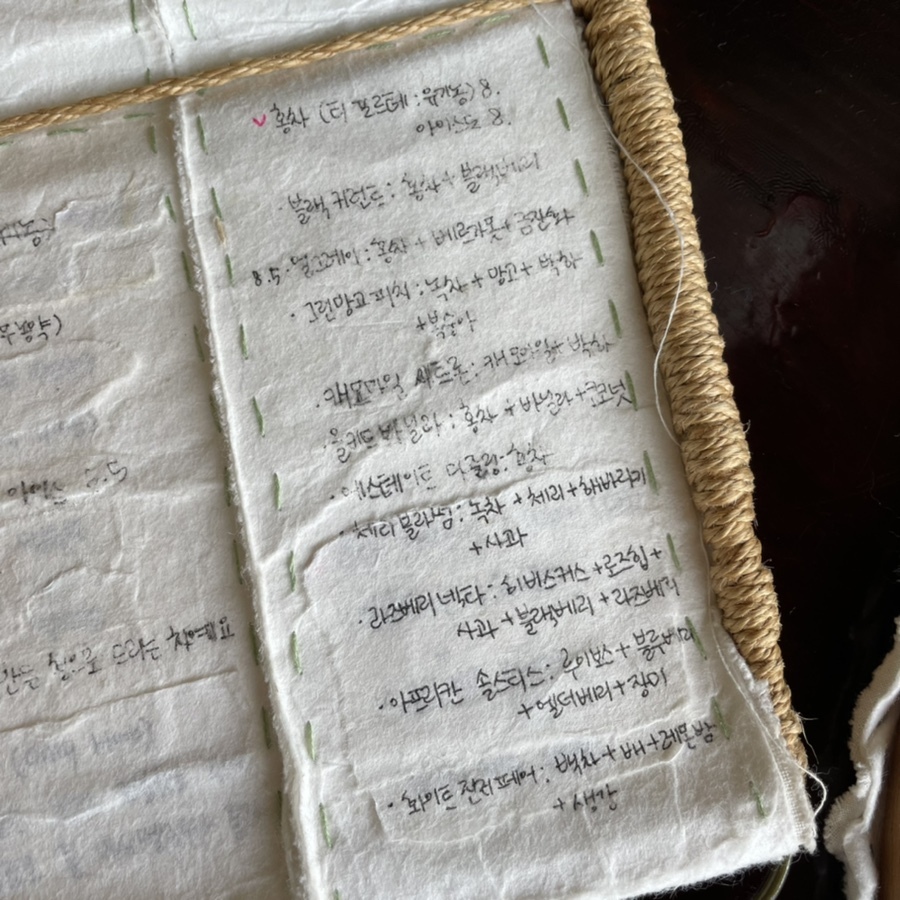 홍차 (티 포르테 : 유기농) 8.
아이스도 8.
· 블랙 커런트 : 홍차 + 블랙베리
8.5 · 얼그레이 : 홍차 + 베르가못 + 금잔화
· 그린망고피치 : 녹차 + 망고 + 박하
+ 복숭아
· 캐모마일 시트론 : 캐모마일 + 박하
· 올키드 바닐라 : 홍차 + 바닐라 + 코코넛
· 에스테이트 다즐링 : 홍차
· 체리블라썸 : 녹차 + 체리 + 해바라기
+ 사과
· 라즈베리 넥타 : 히비스커스 + 로즈힙 +
사과 + 블랙베리 + 라즈베리
· 아프리칸 솔스티스 : 루이보스 + 블루베리
+ 엘더베리 + 장미
· 화이트 진저 페어 : 백차 + 배 + 레몬밤
+ 생강
5.5
드리는